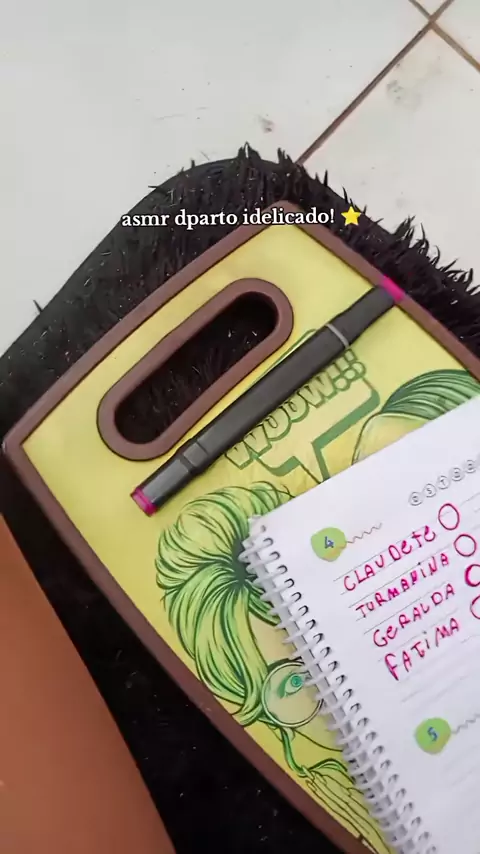 asmr dparto idelicado! ⭐
WOOW!!
4
CLAUDETE
TURMANINA
GERALDA
FATIMA
5